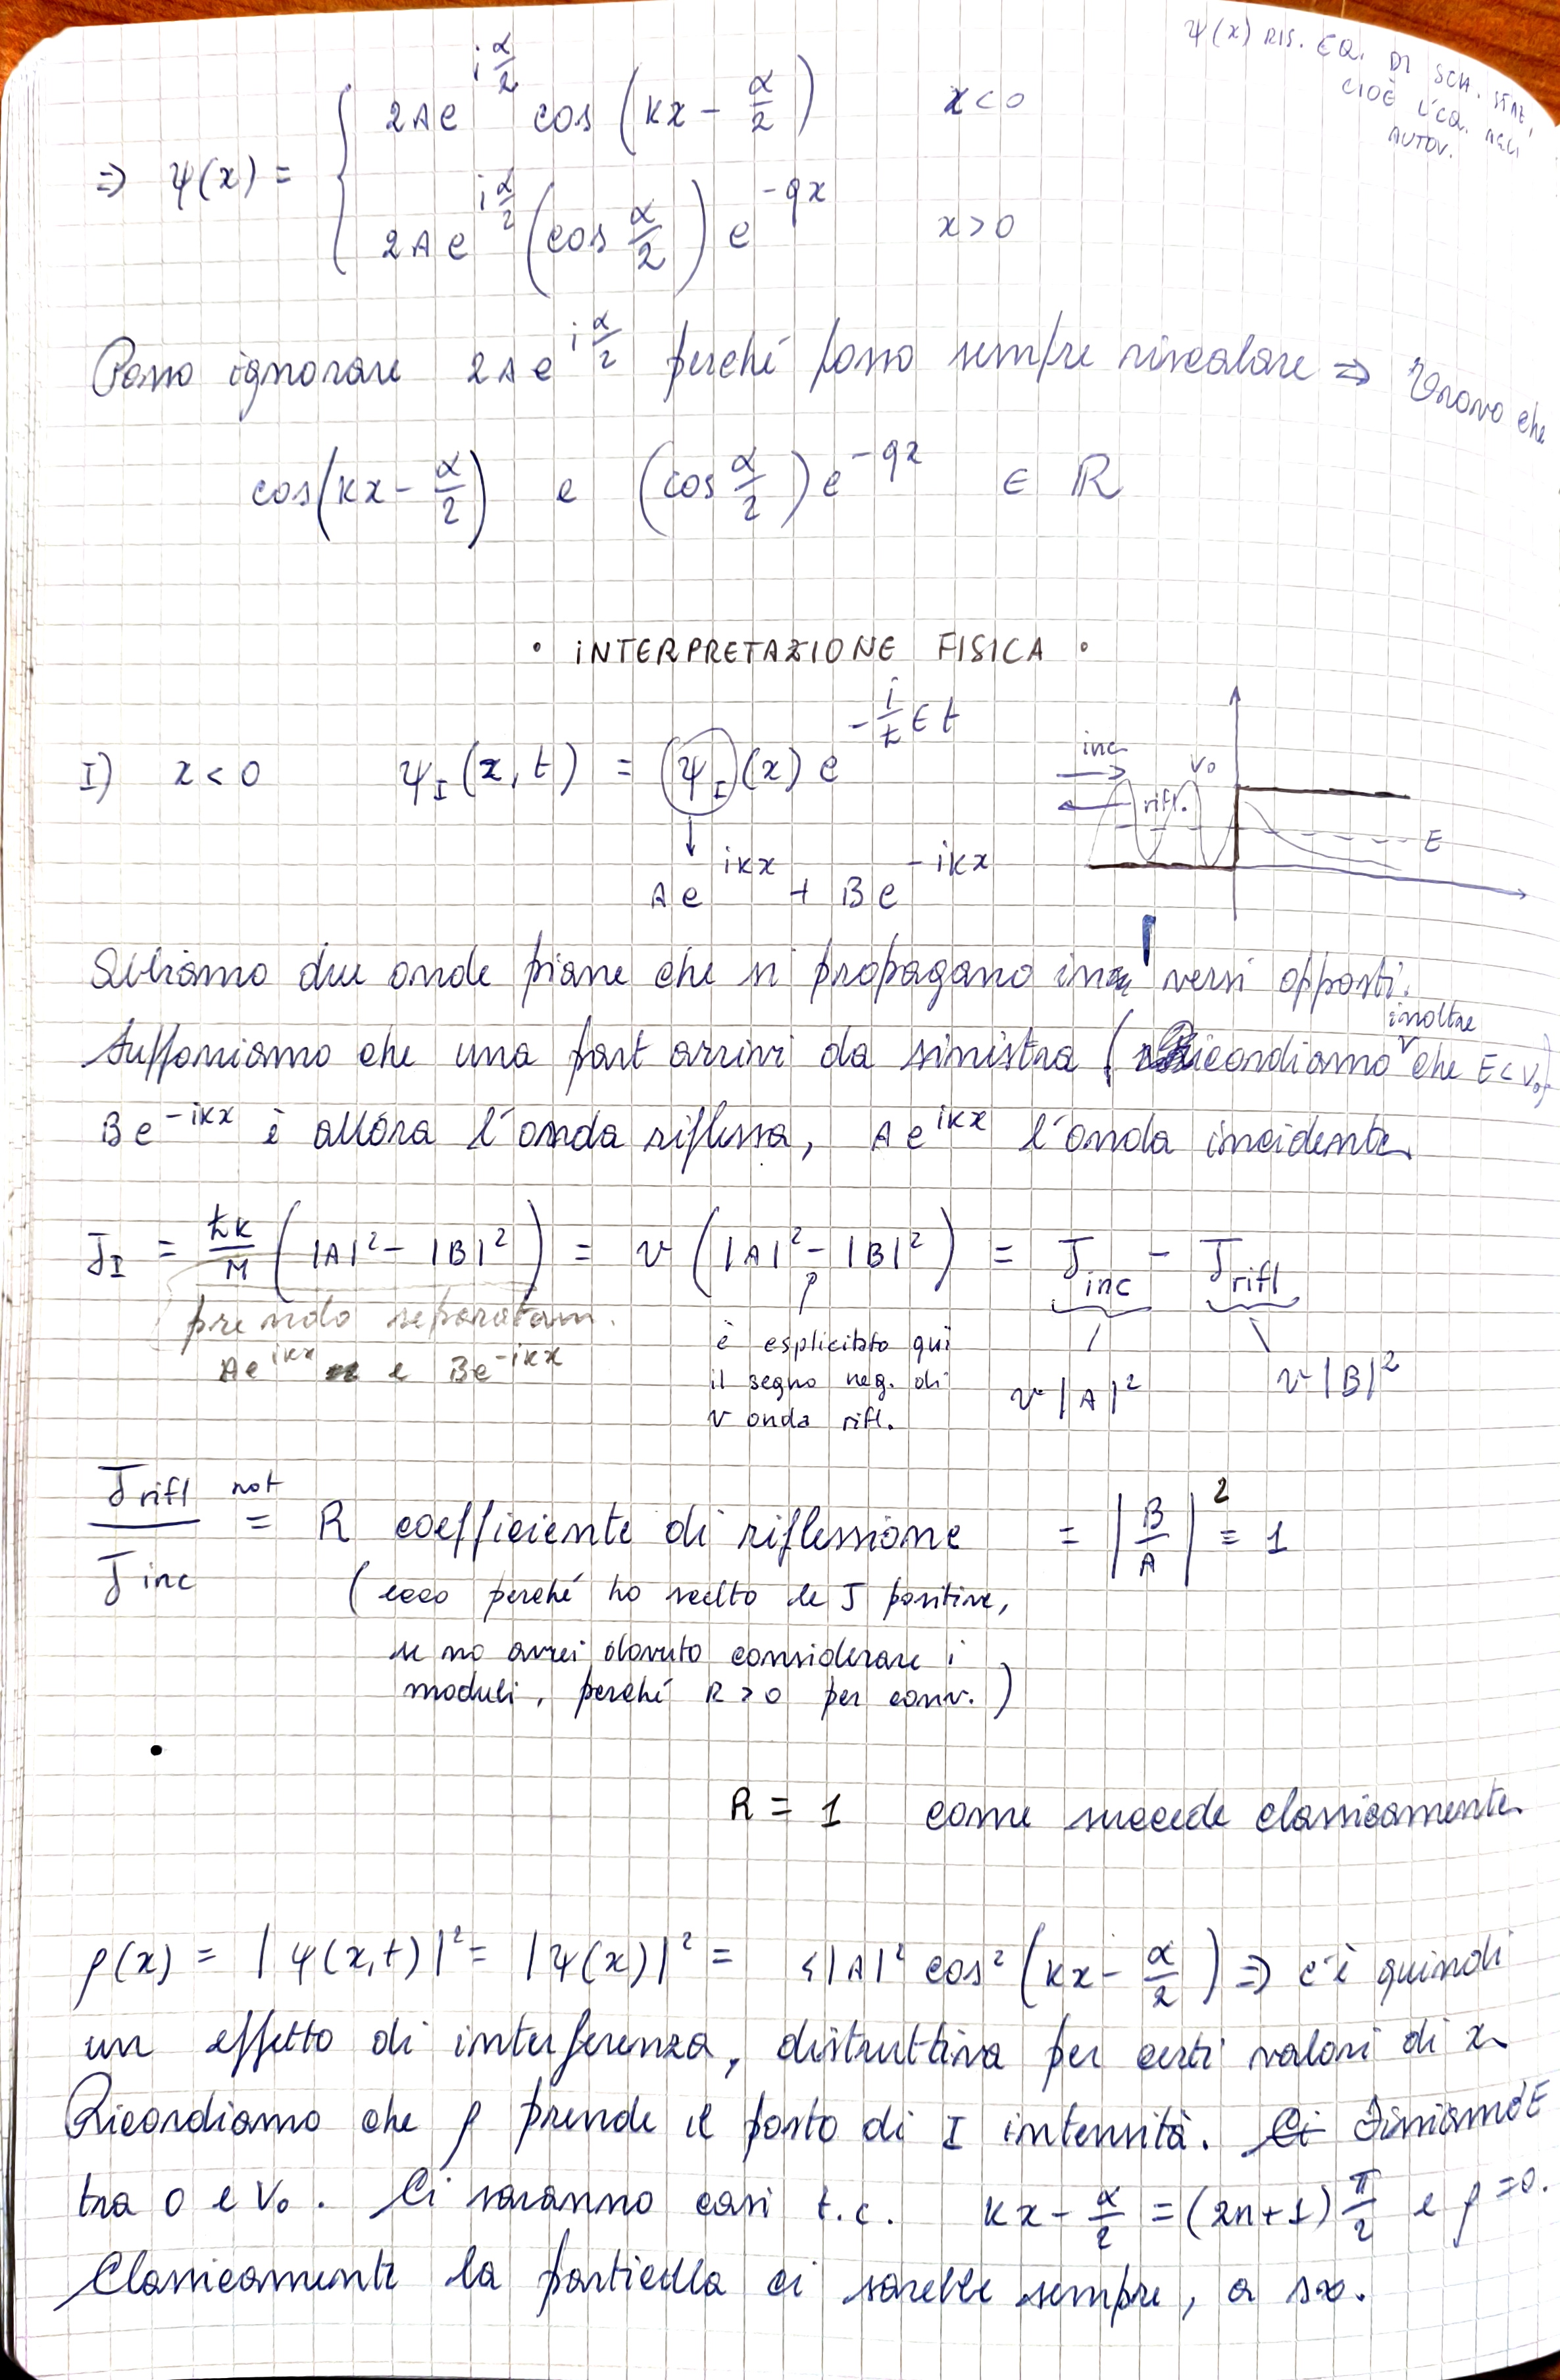 ψ(x) RIS. EQ. DI SCH. STAZ.,
CIOÈ L'EQ. AGLI
AUTOV.
⇒ ψ(x) = { 2A e^{i α/2} cos (kx - α/2)   x < 0
2A e^{i α/2} (cos α/2) e^{-qx}   x > 0
Posso ignorare 2A e^{i α/2} perché posso sempre riscalare ⇒ Trovo che
cos(kx - α/2) e (cos α/2) e^{-qx} ∈ ℝ
• INTERPRETAZIONE FISICA •
I) x < 0   ψ_I (x, t) = ψ_I (x) e^{-i/ħ E t}
↓
A e^{ikx} + B e^{-ikx}
inc
V₀
rifl.
E
Abbiamo due onde piane che si propagano in versi opposti.
Supponiamo che una part arrivi da sinistra (Ricordiamo inoltre che E < V₀)
B e^{-ikx} è allora l'onda riflessa, A e^{ikx} l'onda incidente.
J_I = ħk/M (|A|² - |B|²) = v (|A|² - |B|²) = J_inc - J_rifl
prendo separatam.
A e^{ikx} e B e^{-ikx}
è esplicitato qui
il segno neg. di
v onda rifl.
v |A|²
v |B|²
J_rifl / J_inc =^{not} R coefficiente di riflessione = |B/A|² = 1
(ecco perché ho scelto le J positive,
se no avrei dovuto considerare i
moduli, perché R > 0 per conv.)
•
R = 1 come succede classicamente.
ρ(x) = |ψ(x,t)|² = |ψ(x)|² = 4|A|² cos² (kx - α/2) ⇒ c'è quindi
un effetto di interferenza, distruttiva per certi valori di x.
Ricordiamo che ρ prende il posto di I intensità. Fissiamo E
tra 0 e V₀. Ci saranno casi t.c. kx - α/2 = (2n+1) π/2 e ρ = 0.
Classicamente la particella ci sarebbe sempre, a sx.